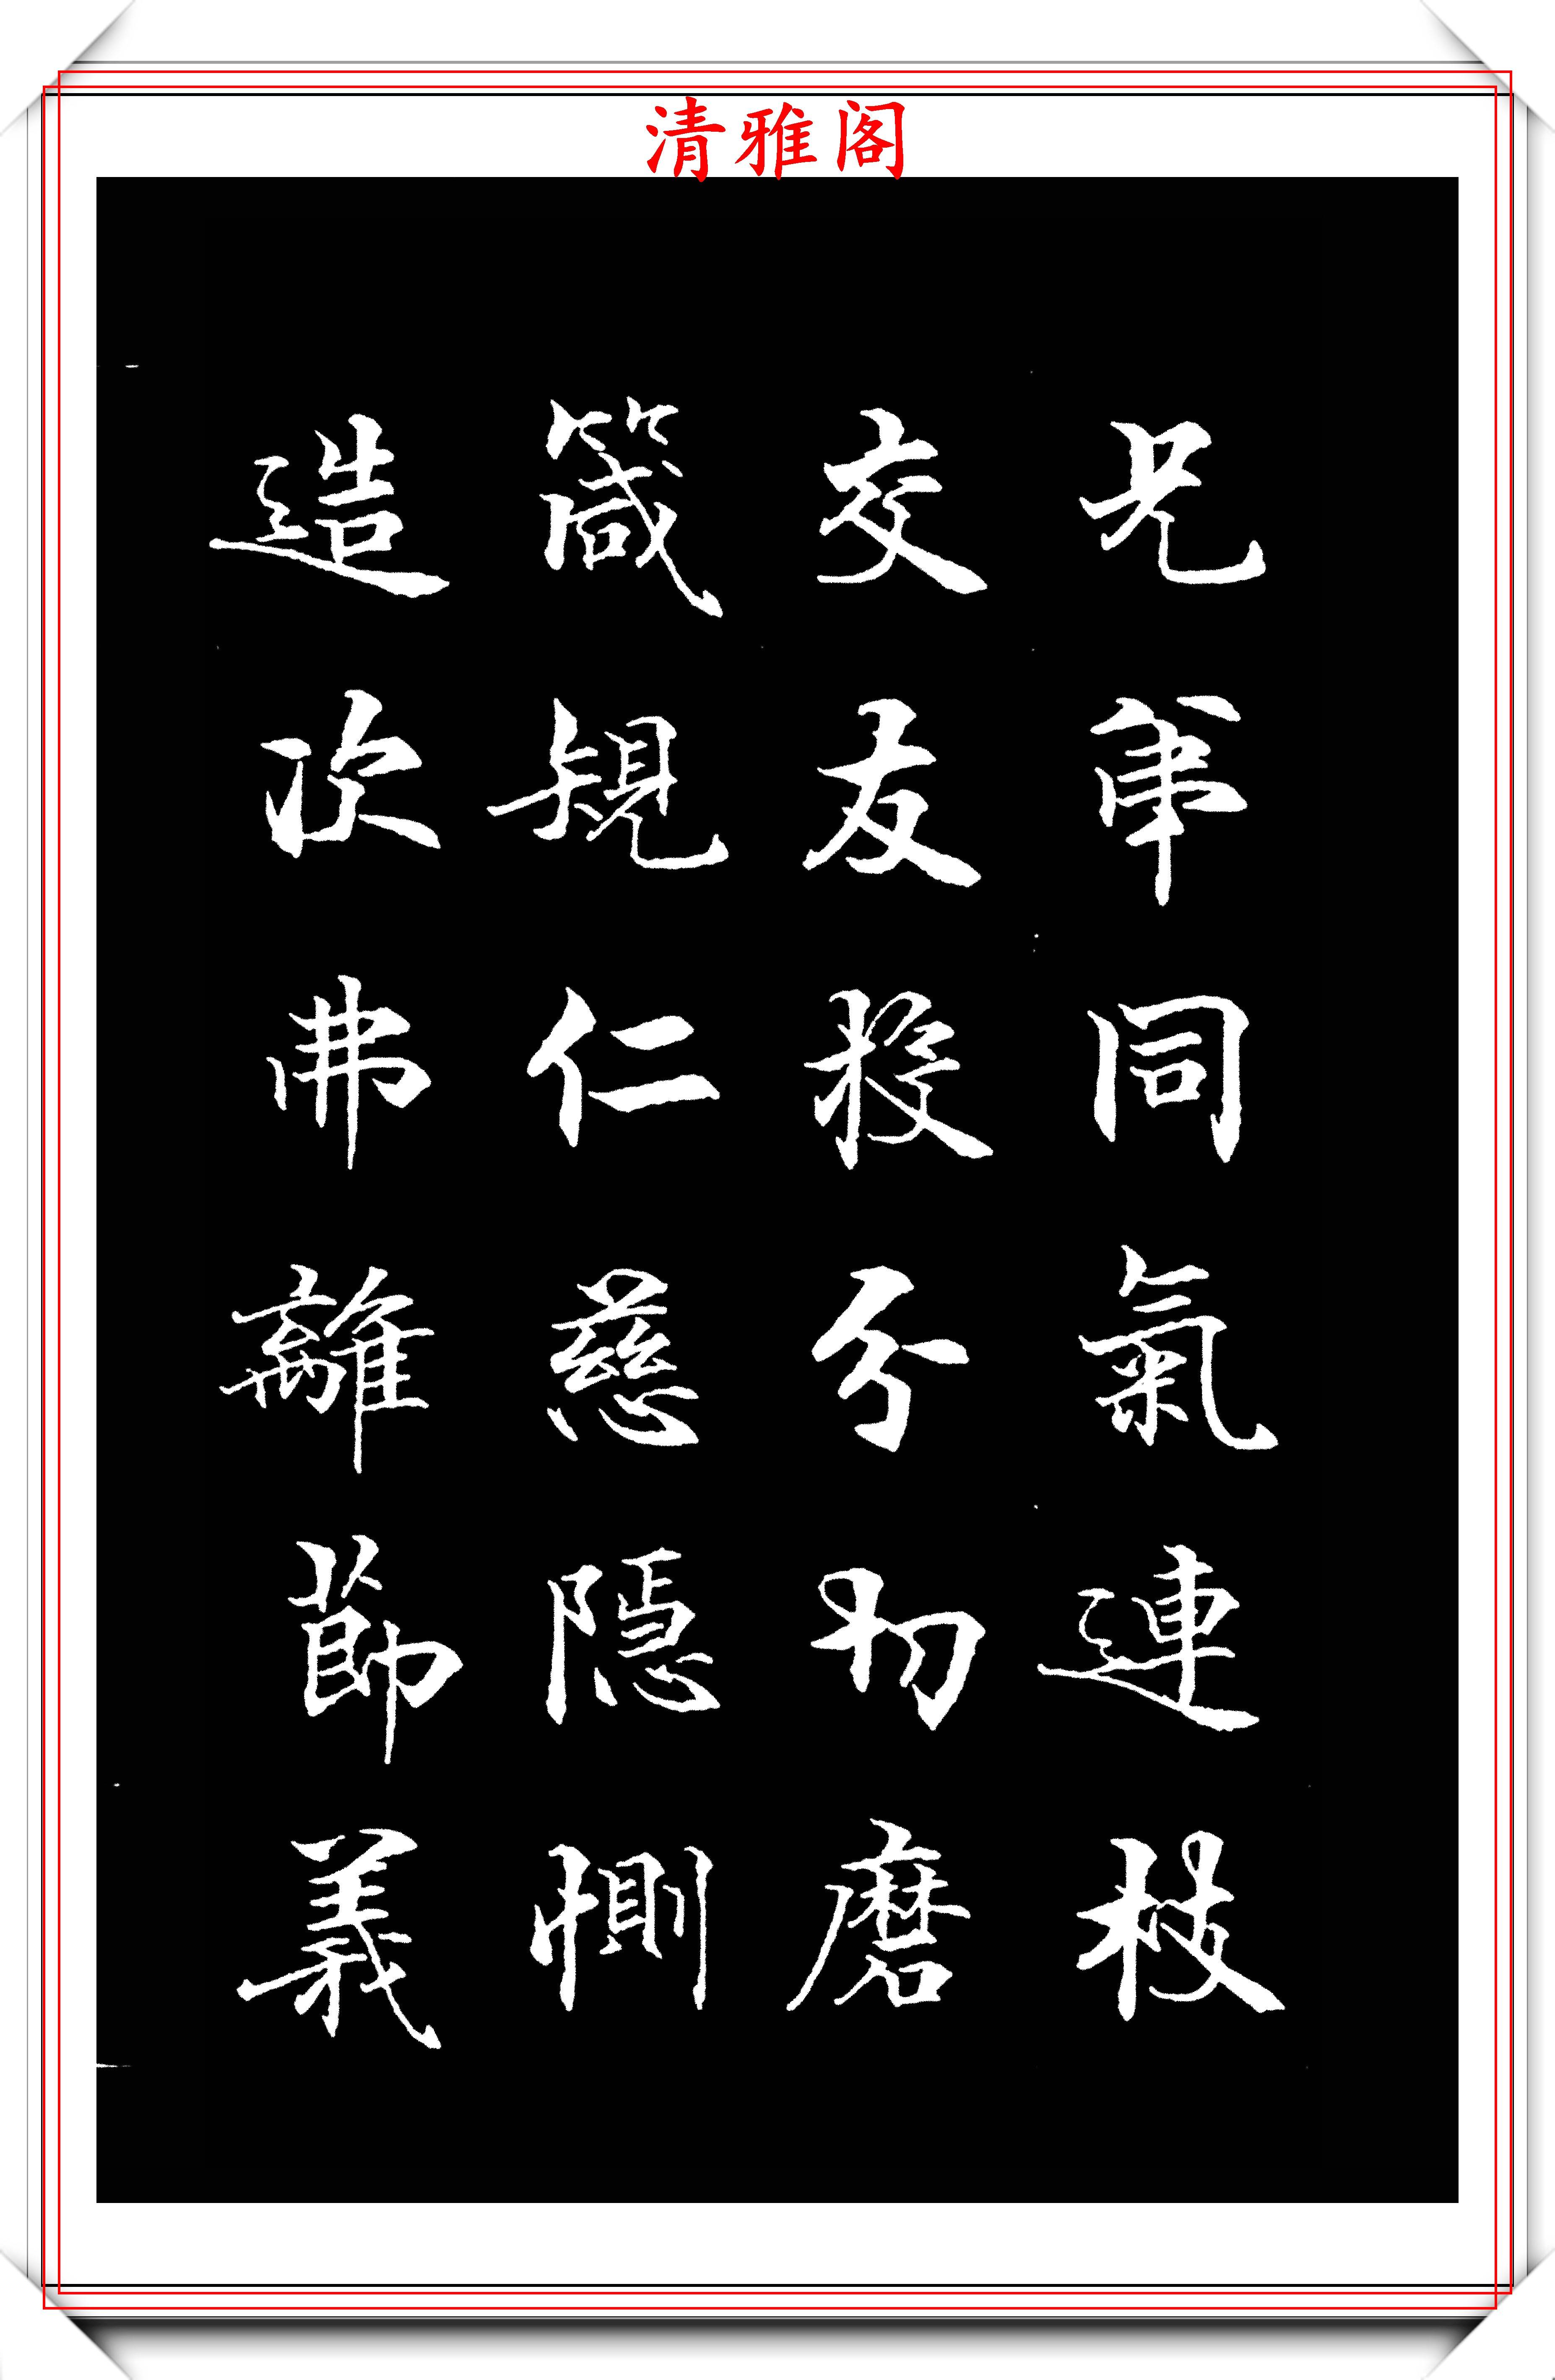 清雅阁
兄弟同氣連枝
交友投分切磨
箴規仁慈隱惻
造次弗離節義